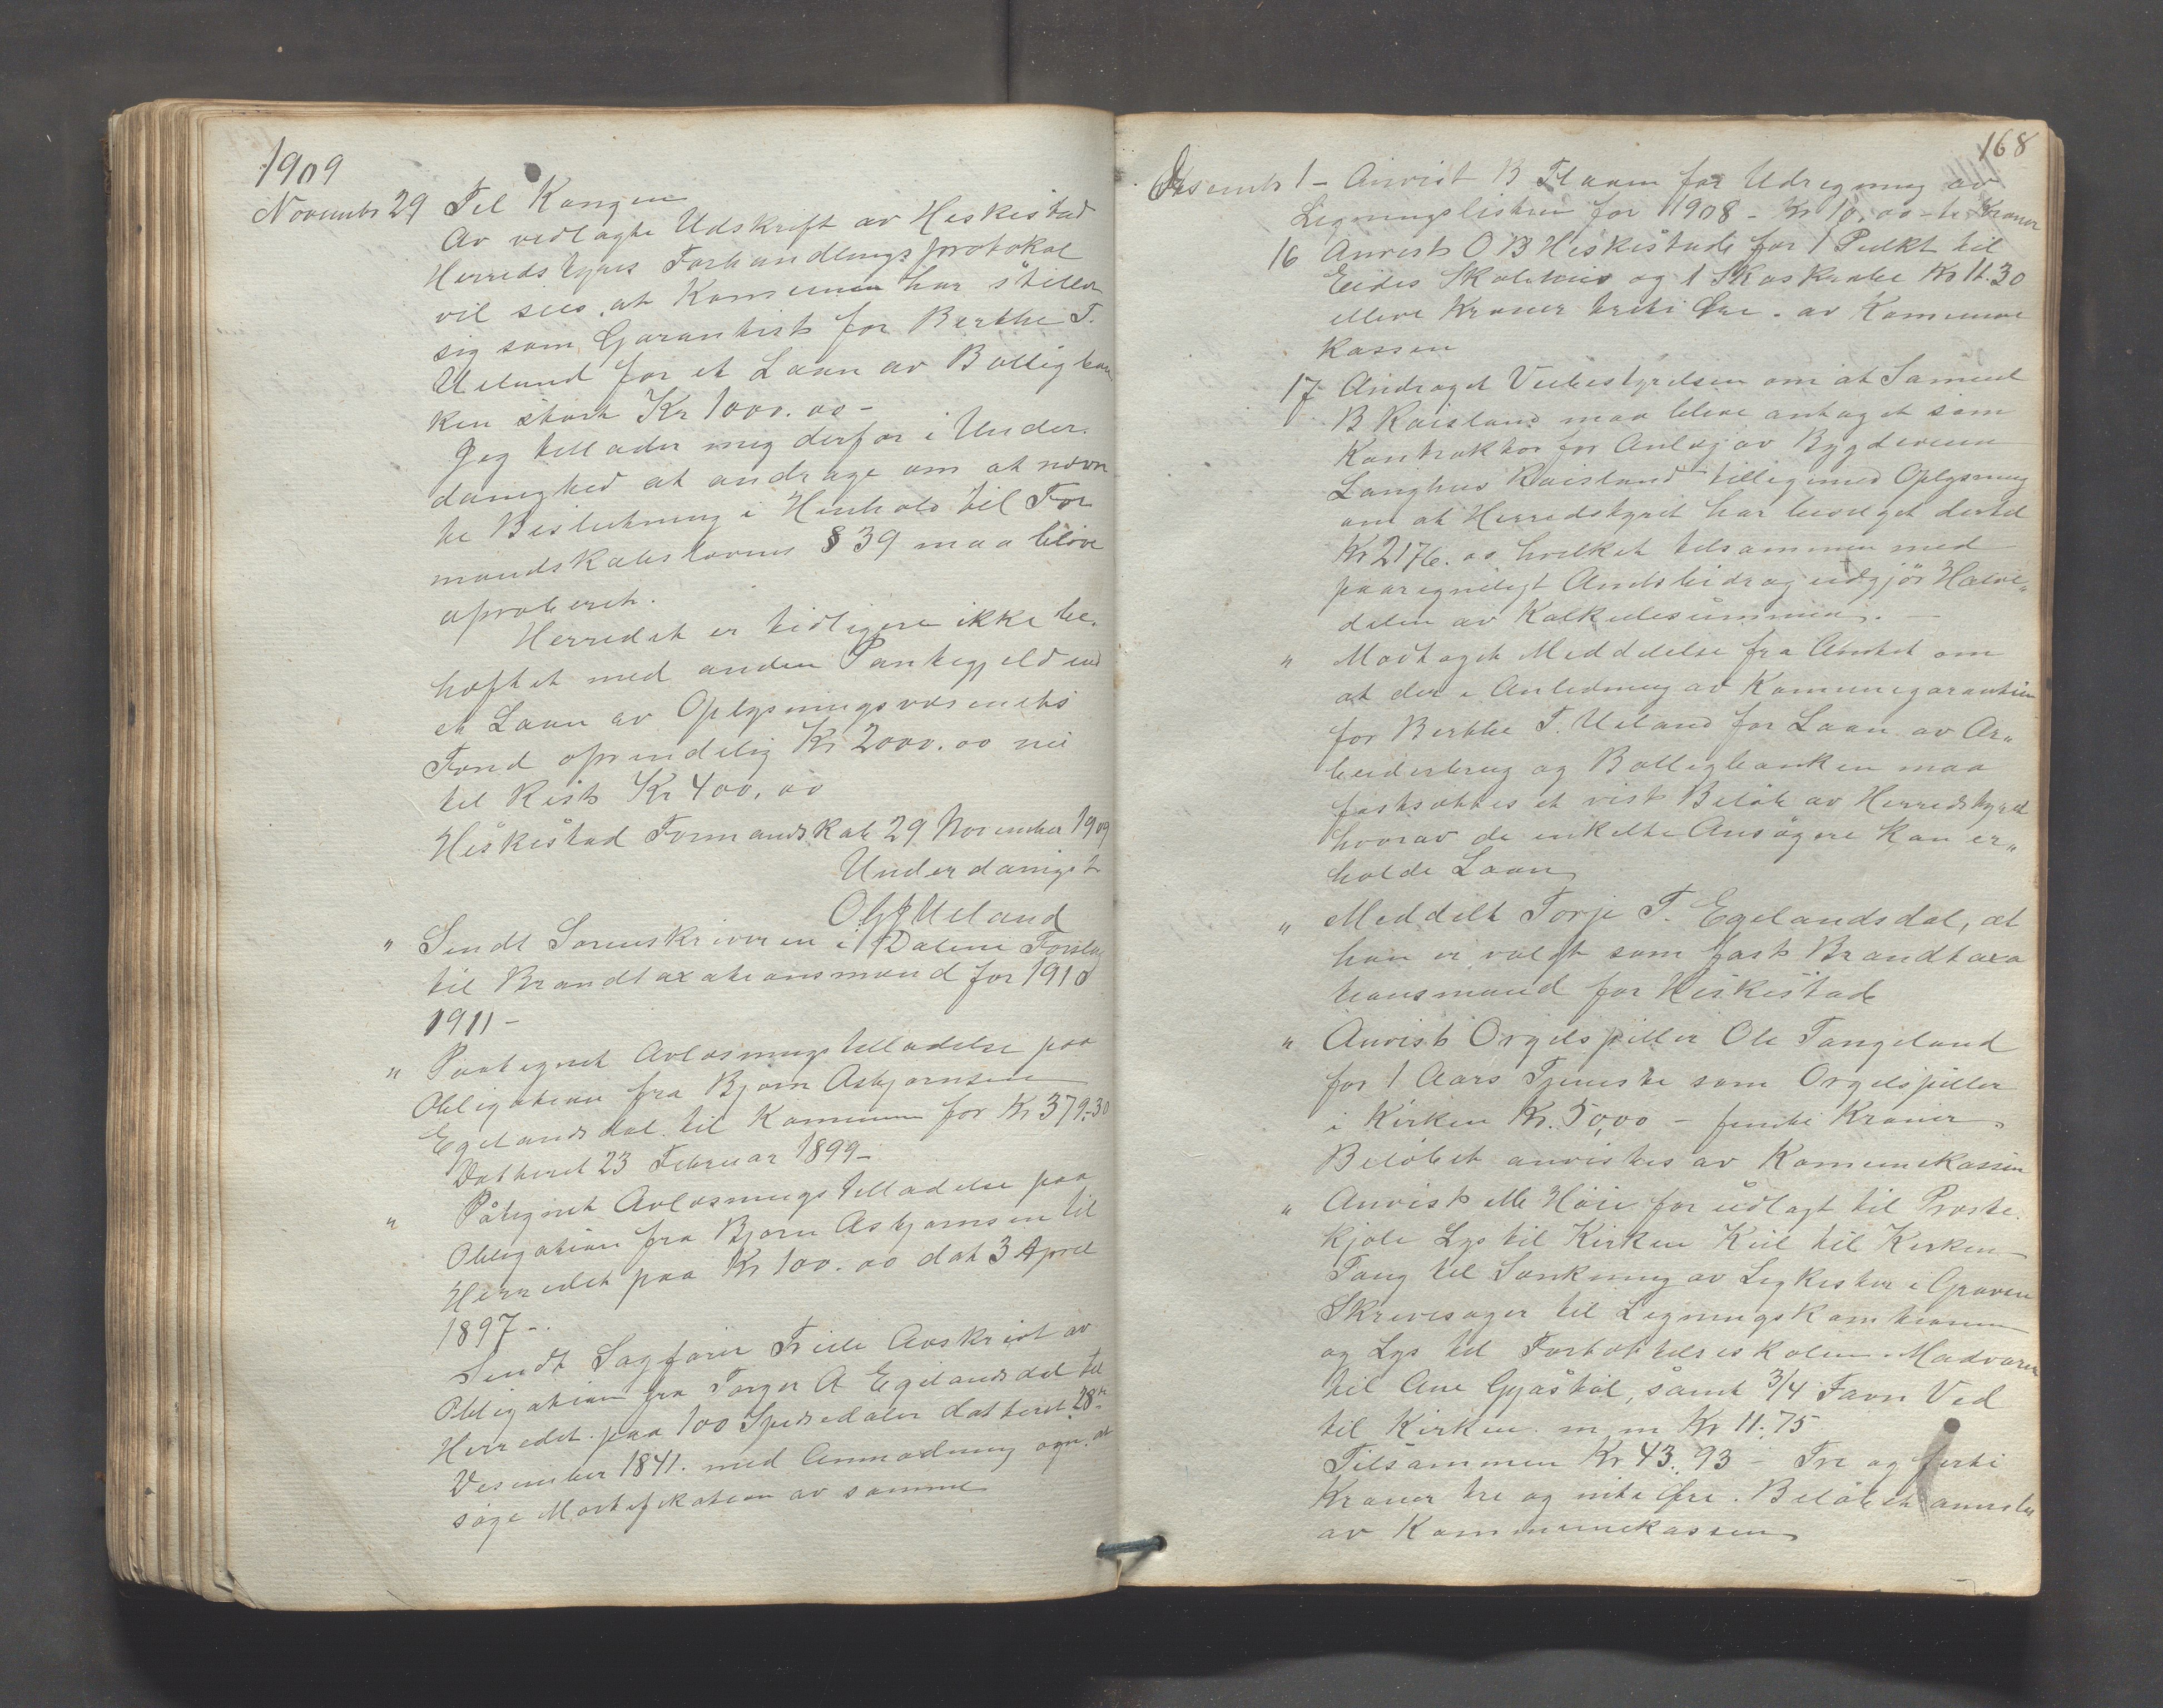 1909
Novembr 29 Til Kongen
Av vedlagte Udskrift av Heskestad
Herredstyres Forhandlingsprotokol
vil sees, at Kommunen har stillet
sig som Garantist for Berthe T.
Ueland for et Laan av Boligban
ken stort Kr 1000.00 -
Jeg tillader mig derfor i Under-
danighed at andrage om at nævn
te Beslutning i Henhold til For
mandskabslovens § 39 maa blive
aproberet.
Herredet er tidligere ikke be-
hæftet med anden Pantegjeld end
et Laan av Oplysningsvæsenets
Fond oprindelig Kr 2000.00 nu
til Rest Kr 400,00
Heskestad Formandskab 29 November 1909
Underdanigst
Ueland
" Sendt Sorenskriveren i Dalene Forslag
til Brandtaxationsmænd for 1910
1911 -
" Paategnet Avløsningstilladelse paa
Obligation fra Bjørn Asbjørnsen
Egelandsdal til Kommunen for Kr 379.30
Datteret 23 Februar 1899 -
" Påtegnet Avløsningstilladelse paa
Obligation fra Bjørn Asbjørnsen til
Herredet paa Kr 100.00 dat 3 April
1897 -
Sendt Sagfører Avskrivt av
Obligation fra Torger A Egelandsdal til
Herredet paa 100 Spesedaler datteret 28de
Desember 1841. med Anmodning om at
søge Mortifikation av samme
168
Desembr 1 - Anvist B Flaam for Udregning av
Ligningslisten for 1908 - Kr 10.00 - ti Kroner
16 Anvist O B Heskestad for 1 Pulkt til
Eides Skolehus og 1 Skoskrabe Kr 11.30
elleve Kroner treti Øre. av Kommune
Kassen
17 Andraget Veibestyrelsen om at Samuel
B Røisland maa blive antaget som
Kontraktør for Anlæg av Bygdeveien
Langhus Røisland tilligemed Oplysning
om at Herredstyret har bevilget dertil
Kr 2176.00 hvilket tilsammen med
paaregneligt Amtsbidrag udgjør Halv-
delen av Kalkulesummen. -
" Modtaget Meddelelse fra Amtet om
at der i Anledning av Kommunegarantien
for Berthe T. Ueland for Laan av Ar-
beiderbrug og Boligbanken maa
fastsættes et vist Beløb av Herredstyret
hvorav de enkelte Ansøgere kan er-
holde Laan
" Meddelt Torje T. Egelandsdal, at
han er valgt som fast Brandtaxa
tionsmand for Heskestad
" Anvist Orgelspiller Ole Tengeland
for 1 Aars Tjeneste som Orgelspiller
i Kirken Kr. 50,00 - femti Kroner.
Beløbet anvistes av Kommunekassen
" Anvist Høie for udlagt til Preste
kjole Lys til Kirken Kul til Kirken
Taug til Sænkning av Ligkister i Graven
Skrivesager til Ligningskommissionen
og Lys til Fortsættelseskolen. Madvarer
til Ane Gyåstøl, samt 3/4 Favn Ved
til Kirken m m Kr 11.75
Tilsammen Kr 43.93 - Tre og førti
Kroner tre og niti Øre. Beløbet anvistes
av Kommunekassen